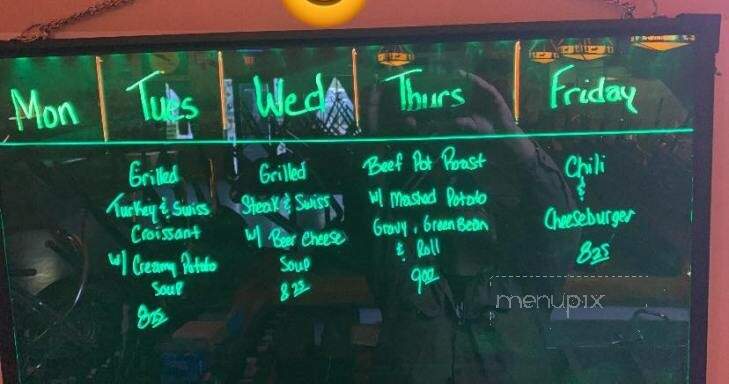 Mon
Tues
Wed
Thurs
Friday
Grilled
Turkey & Swiss
Croissant
w/ Creamy Potato
Soup
8.25
Grilled
Steak & Swiss
w/ Beer Cheese
Soup
8.25
Beef Pot Roast
w/ Mashed Potato
Gravy, Green Bean
& Roll
9.00
Chili
&
Cheeseburger
8.25
menupix